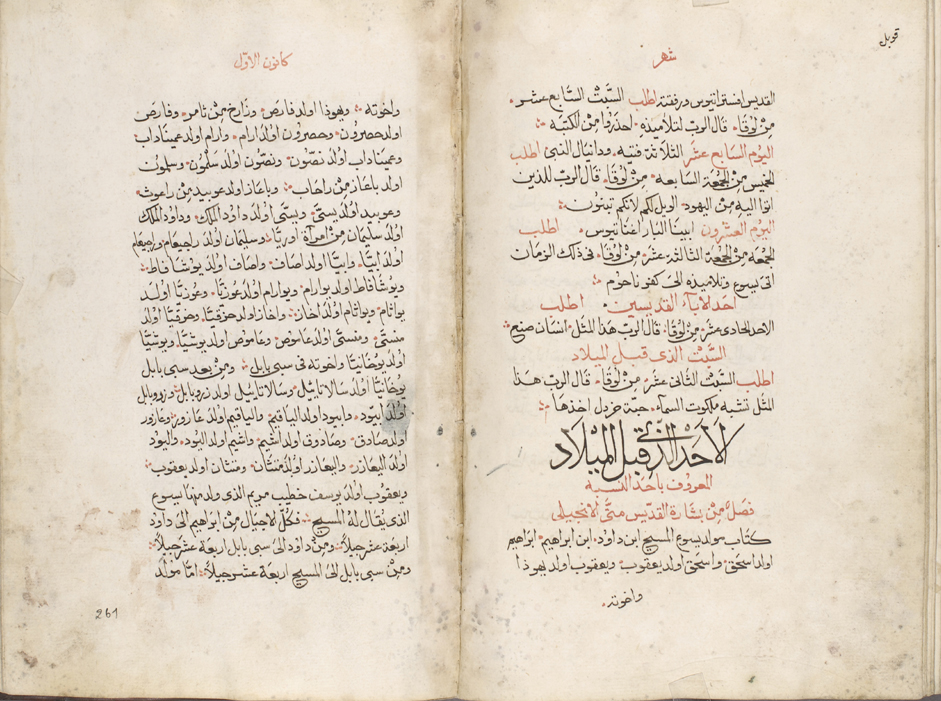 قوبل
شهر
القديس افستراتيوس ورفقته اطلب السبت السابع عشر
مِن لُوقَا قال الرب لتلاميذه احذروا مِن الكتبه
اليوم السابع عشر الثلاثة فتيه ودانيال النبي اطلب
الخميس مِن الجُمعَة السابعه مِن لُوقَا قال الربّ للذين
اتوا اليه مِن اليهود الويل لكم لانكم تبنون
اليوم العشرون ابينا البار اغناتيوس اطلب
الجمعه مِن الجمعة الثالثة عشر مِن لوقا في ذلك الزمان
اتى يسوع وتلاميذه الى كفرناحوم
احد الابآء القديسين اطلب
الاحد الحادى عشر مِن لوقا قال الربّ هذا المثل انسان صنع
السّبت الذى قبل الميلاد
اطلب السّبت الثانى عشر مِن لُوقَا قال الربّ هذا
المثل تشبه ملكوت السمآء حبة خردل اخذها
الاحَد الذى قبل الميْلاد
المعروف باحد النسبة
فصلٌ مِن بشارة القدّيس متّى الانجيلى
كتاب مولد يسوع المسيح ابن داود ابن ابراهيم ابراهيم
اولد اسحق واسحق اولد يعقوب ويعقوب اولد يهوذا
واخوته
كانون الاوّل
واخوته ويهوذا اولد فارص وزارخ مِن ثامر وفارص
اولد حصرون وحصرون اولد ارام وارام اولد عميناداب
وعميناداب اولد نصّون ونصّون اولد سلمون وسلمون
اولد باعاز مِن راحاب وباعاز اولد عوبيد مِن راعوث
وعوبيد اولد يسّى ويسّى اولد داود الملك وداود الملك
اولد سليمان مِن امرآة اوريّا وسليمان اولد راجبعام وراجبعام
اولد ابيّا وابيّا اولد اصاف واصاف اولد يوشافاط
ويوشافاط اولد يورام ويورام اولد عوزيّا وعوزيّا اولد
يواثام ويواثام اولد احاز واحاز اولد حزقيّا وحزقيّا اولد
منسّى ومنسّى اولد عاموص وعاموص اولد يوشيّا ويوشيّا
اولد يوخانيّا واخوته فى سبى بابل ومِن بعد سبى بابل
يوخانيّا اولد سالاتاييل وسالاتاييل اولد زروبابل وزروبابل
اولد ابيّود وابيود اولد الياقيم والياقيم اولد عازور وعازور
اولد صادوق وصادوق اولد اشيم واشيم اولد اليود واليود
اولد اليعازر واليعازر اولد متثان ومتثان اولد يعقوب
ويعقوب اولد يوسف خطيب مريم الذى ولد منها يسوع
الذى يقال له المسيح فكل الاجيال مِن ابراهيم الى داود
اربعة عشر جيلاً ومِن داود الى سبى بابل اربعة عشر جيلاً
ومِن سبى بابل الى المسيح اربعة عشر جيلاً امّا مولد
261